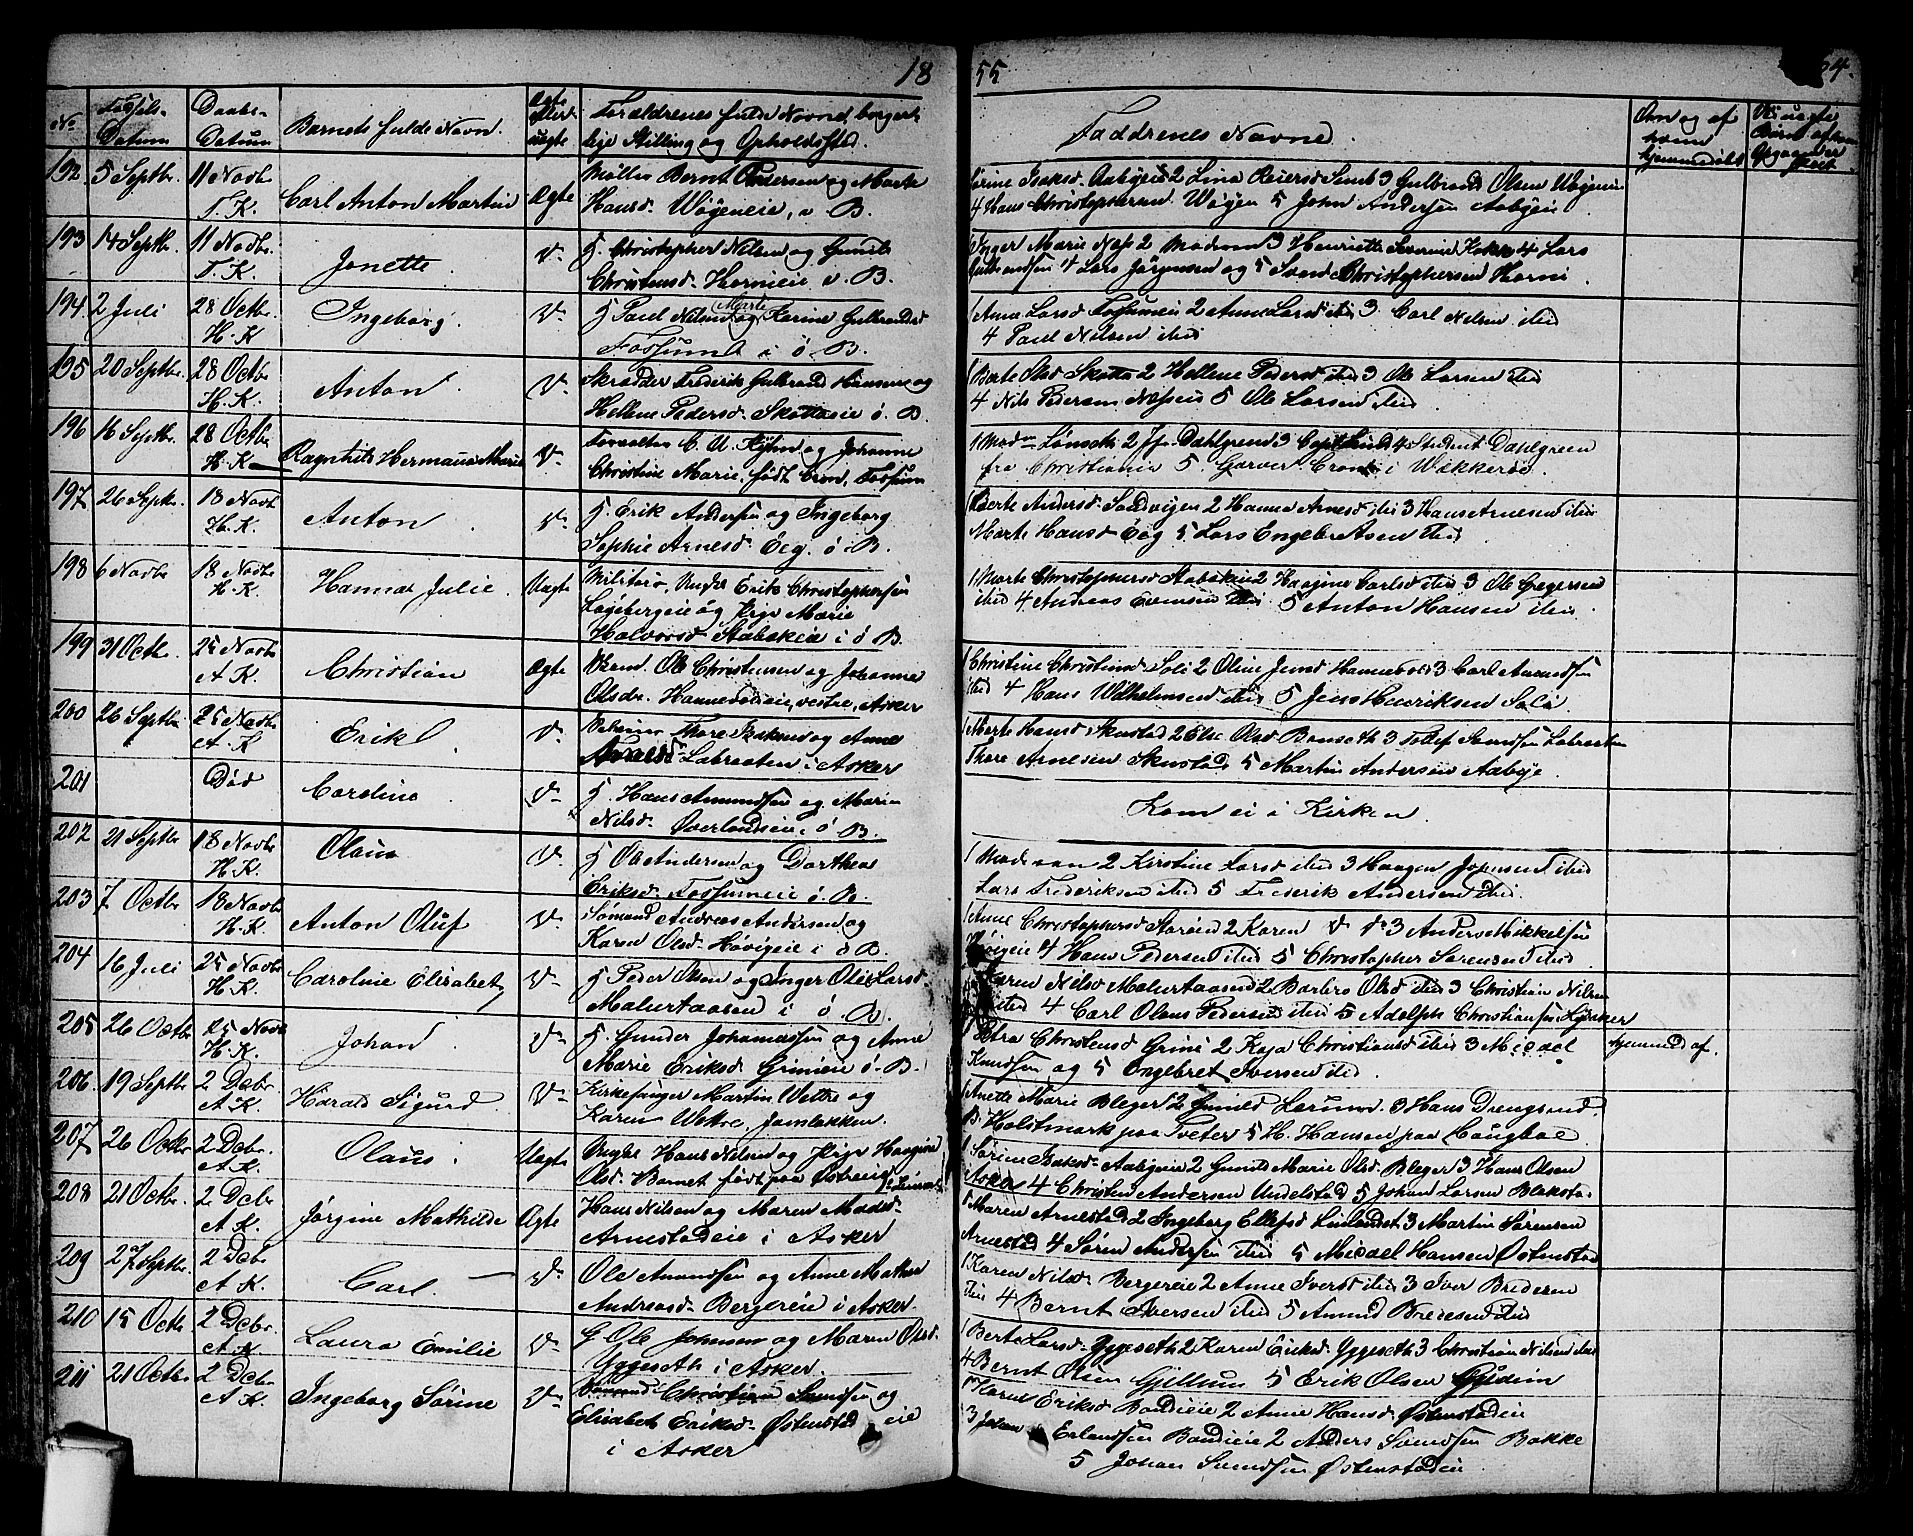 18 55 54.
No Fødsels- Datum Daabs- Datum Barnets fulde Navn. Ægte eller uægte Forældrenes fulde Navne, borgerlige Stilling og Opholdsted. Faddrenes Navne. Om og af hvem hjemmedøbt
192 5 Septbr. 11 Novbr T. K. Carl Anton Martin Ægte Møller Bernt Pedersen og Marte
Hansd. Wøyeneie, v B.
Sørine Isaksd. Aabyeie 2 Lina Reiersd 3 Gulbrand Olsen Wøyeneie
4 Hans Christophersen Wøyen 5 John Andersen Aabyeie
193 14 Septbr. 11 Novbr T. K. Jonette
Christopher Nilsen og Gunild
Christensd. Hornieie v. B.
Inger Marie Næs 2 Madmm 3 Henriette 4 Lars
4 Lars Jörgensen og 5 Svend Christophersen Horni
194 2 Juli 28 Octbr. H. K Ingeborg
Paul Nilsen og Marte Karine Gulbrandsd
Fossum i ö B.
1 Anne Larsd Fossumeie 2 Anne Larsd ibid 3 Carl Nilsen ibid
4 Paul Nilsen ibid
195 20 Septbr. 28 Octbr H. K. Anton
Skrædder Frederik Gulbrand Hansen og
Hellene Pedersd. Skottaeie ö. B
1 Berte Olsd Skotta 2 Hellene Pedersd ibid 3 Ole Larsen ibid
4 Nils Pedersen Næsseie 5 Ole Larsen ibid
196 16 Septbr. 28 Octbr H. K Ragnhild Hermana Marie
Forvalter C. og Johanne
Christine Marie, født Cron, Fossum
2 Jfr. Dahlgren 3 Lund 4 Student Dahlgreen
fra Christiania 5. Garver Cron i Wækkerøe.
197 26 Septbr. 18 Novbr H. K. Anton
Erik Andersen og Ingeborg
Sophie Arnesd. Eeg. ö. B.
1 Berte Andersd. Sandvigen 2 Hanna Arnesd ibid 3 Hans Arnesen ibid
Marte Hansd Eeg 5 Lars Engebretsen ibid
198 6 Novbr 18 Novbr H. K. Hanna Julie Uægte
Militair, Ungk. Erik Christophersen
Løgebergeie og Pige Marie
Halvorsd Stabækeie i ö B.
1 Marte Christophersd Stabækeie 2 Haagine Carlsd ibid 3 Ole Gregersen
ibid 4 Andreas Evensen ibid 5 Anton Hansen ibid.
199 31 Octbr. 25 Novbr A K. Christian Ægte
Ole Christensen og Johanne
Olsdr. Hannevoldeie, vestre, Asker
1 Christine Christiansd Solie 2 Oline Jensd Hannevold 3 Carl Amundsen
ibid 4 Hans Wilhelmsen ibid 5 Jens Henriksen Solie
200 26 Septbr 25 Novbr. A. K Erik
Thore Isaksen og Anne
Arnesd Labraaten i Asker
1 Marte Hansd Skustad 2 Else Olsd 3 Tollef Samdsen Labraaten
Thore Arnesen Skustad 5 Martin Andersen Aabye.
201 Död Caroline
Hans Amundsen og Maria
Nilsd. Øverlandseie, ö B.
Kom ei i Kirken.
202 21 Septbr 18 Novbr H. K. Olaus
Ole Andersen og Dorthea
Eriksd. Fossumeie ö. B.
2 Kirstine Larsd ibid 3 Haagen Jensen ibid
Lars Frederiksen ibid 5 Frederik Andersen ibid.
203 7 Octbr 18 Novbr H. K. Anton Oluf
Sømand Andreas Andersen og
Karen Olsd. Høvigeie i ö B.
1 Anne Christophersd Starøen 2 Karen 3 Anders Mikkelsen
Høvigeie 4 Hans Pedersen ibid 5 Christopher Sørensen ibid
204 16 Juli 25 Novbr H. K. Caroline Elisabet
Peder Olsen og Inger Olie Larsd.
Malertaasen i ö. B.
Karen Nilsd Malertaasen 2 Barbro Olsd ibid 3 Christian Nilsen
ibid 4 Carl Olaus Pedersen ibid 5 Adolph Christiansen Lysaker
205 26 Octbr 25 Novbr H. K. Johan
Gunder Johannessen og Anne
Marie Eriksd Grinieie ö. B.
Petra Christensd Grini 2 Kaja Christiansd ibid 3 Micael
Knudsen og 5 Engebret Iversen ibid.
hjemmed af.
206. 19 Septbr 2 Decbr A K. Harald Sigurd
Kirkesanger Martin Wettre og
Karen Wettre, Jamlokken.
Anette Marie Bleger 2 Gunild Lerum. 3 Hans Drengsrud.
B. Holstmark paa Tveter 5 H. Hansen paa
207 26 Octbr 2 Decbr. A K. Olaus. Uægte
Ungk. Hans Nilsen og Pige Haagine
Olsd. Barnet født paa Østreeie
1 Sørine Isaksd. Aabyeie 2 Gunild Marie Olsd. Bleger 3 Hans Olsen
Asker 4 Christen Andersen Undelstad 5 Johan Larsen Blakstad
208 21 Octbr. 2 Decbr A K. Jørgine Mathilde Ægte
Hans Nilsen og Maren Madsd.
Arnestadeie i Asker
1 Maren Arnestad 2 Ingeborg Ellefsd Linlandet 3 Martin Sørensen
Arnestad 4 Søren Andersen ibid 5 Micael Hansen Østenstad
209 27 Septbr. 2 Decbr A K. Carl.
Ole Amundsen og Anne
Andreasd. Bergereie i Asker.
1 Karen Nilsd. Bergereie 2 Anne Iversd ibid 3 Iver Bredesen
ibid 4 Bernt Iversen ibid 5 Amund Bredesen ibid
210 15 Octbr 2 Decbr. A K Laura Emilie
G Ole Johansen og Maren Olsd.
Yggeseth i Asker.
1 Berte Larsd. Yggeseth 2 Karen Eriksd. Yggeseth 3 Christian Nilsen ibid
4 Bernt Olsen Gjellum 5 Erik Olsen
211 21 Octbr. 2 Decbr A K. Ingeborg Sørine
Christian Samdsen og
Elisabeth Eriksd. Østenstad eie
i Asker
1 Karen Eriksd Bondieie 2 Anne Hansd. Østenstadeie
3 Johan Erlandsen Bondieie 2 Anders Samdsen Bakke
5 Johan Samdsen Østenstadeie